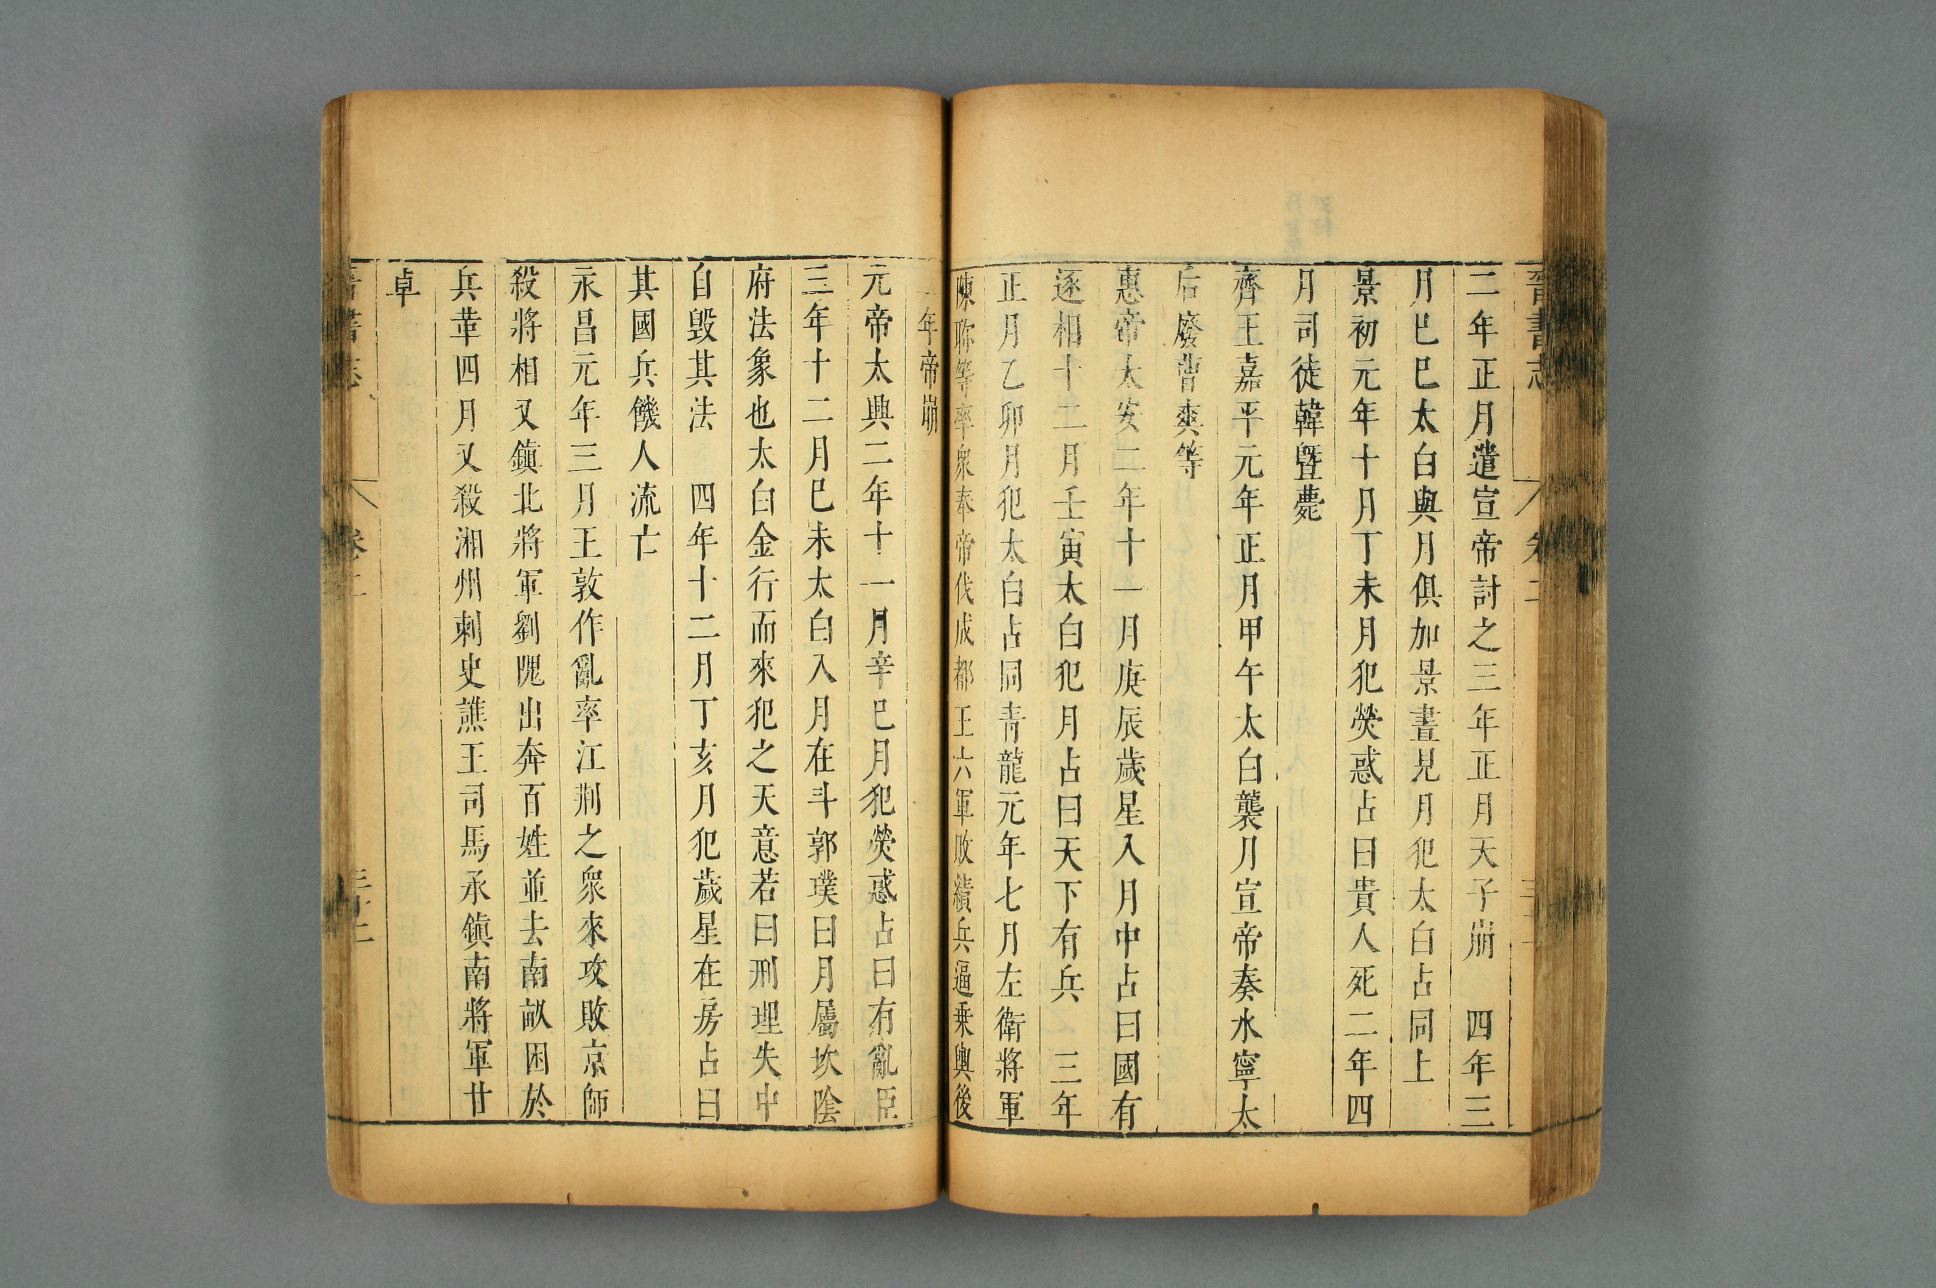 晉書志 卷二
二年正月遣宣帝討之三年正月天子崩 四年三
月已巳太白與月俱加景晝見月犯太白占同上
景初元年十月丁未月犯熒惑占曰貴人死二年四
月司徒韓曁薨
齊王嘉平元年正月甲午太白襲月宣帝奏永寧太
后廢曹爽等
惠帝太安二年十一月庚辰歲星入月中占曰國有
逐相十二月壬寅太白犯月占曰天下有兵 三年
正月乙卯月犯太白占同青龍元年七月左衛將軍
陳眕等率衆奉帝伐成都王六軍敗績兵逼乗輿後
二年帝崩
元帝太興二年十一月辛巳月犯熒惑占曰有亂臣
三年十二月巳未太白入月在斗郭璞曰月屬坎陰
府法象也太白金行而來犯之天意若曰刑理失中
自毀其法 四年十二月丁亥月犯歲星在房占曰
其國兵饑人流亡
永昌元年三月王敦作亂率江荆之衆來攻敗京師
殺將相又鎮北將軍劉隗出奔百姓並去南畝困於
兵革四月又殺湘州刺史譙王司馬承鎮南將軍甘
卓
晉書志 卷二 三十二